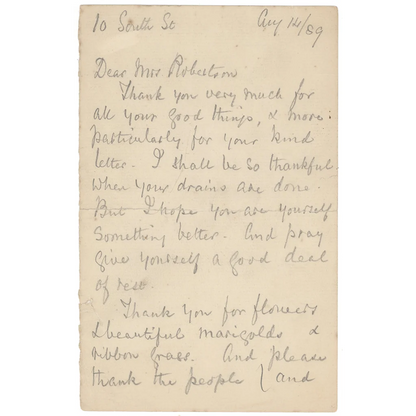 10 South St Aug 14/89
Dear Mrs Robertson
Thank you very much for
all your good things, & more
particularly for your kind
letter. I shall be so thankful
when your drains are done.
But I hope you are yourself
something better. And pray
give yourself a good deal
of rest.
Thank you for flowers
& beautiful marigolds &
ribbon grass. And please
thank the people (and